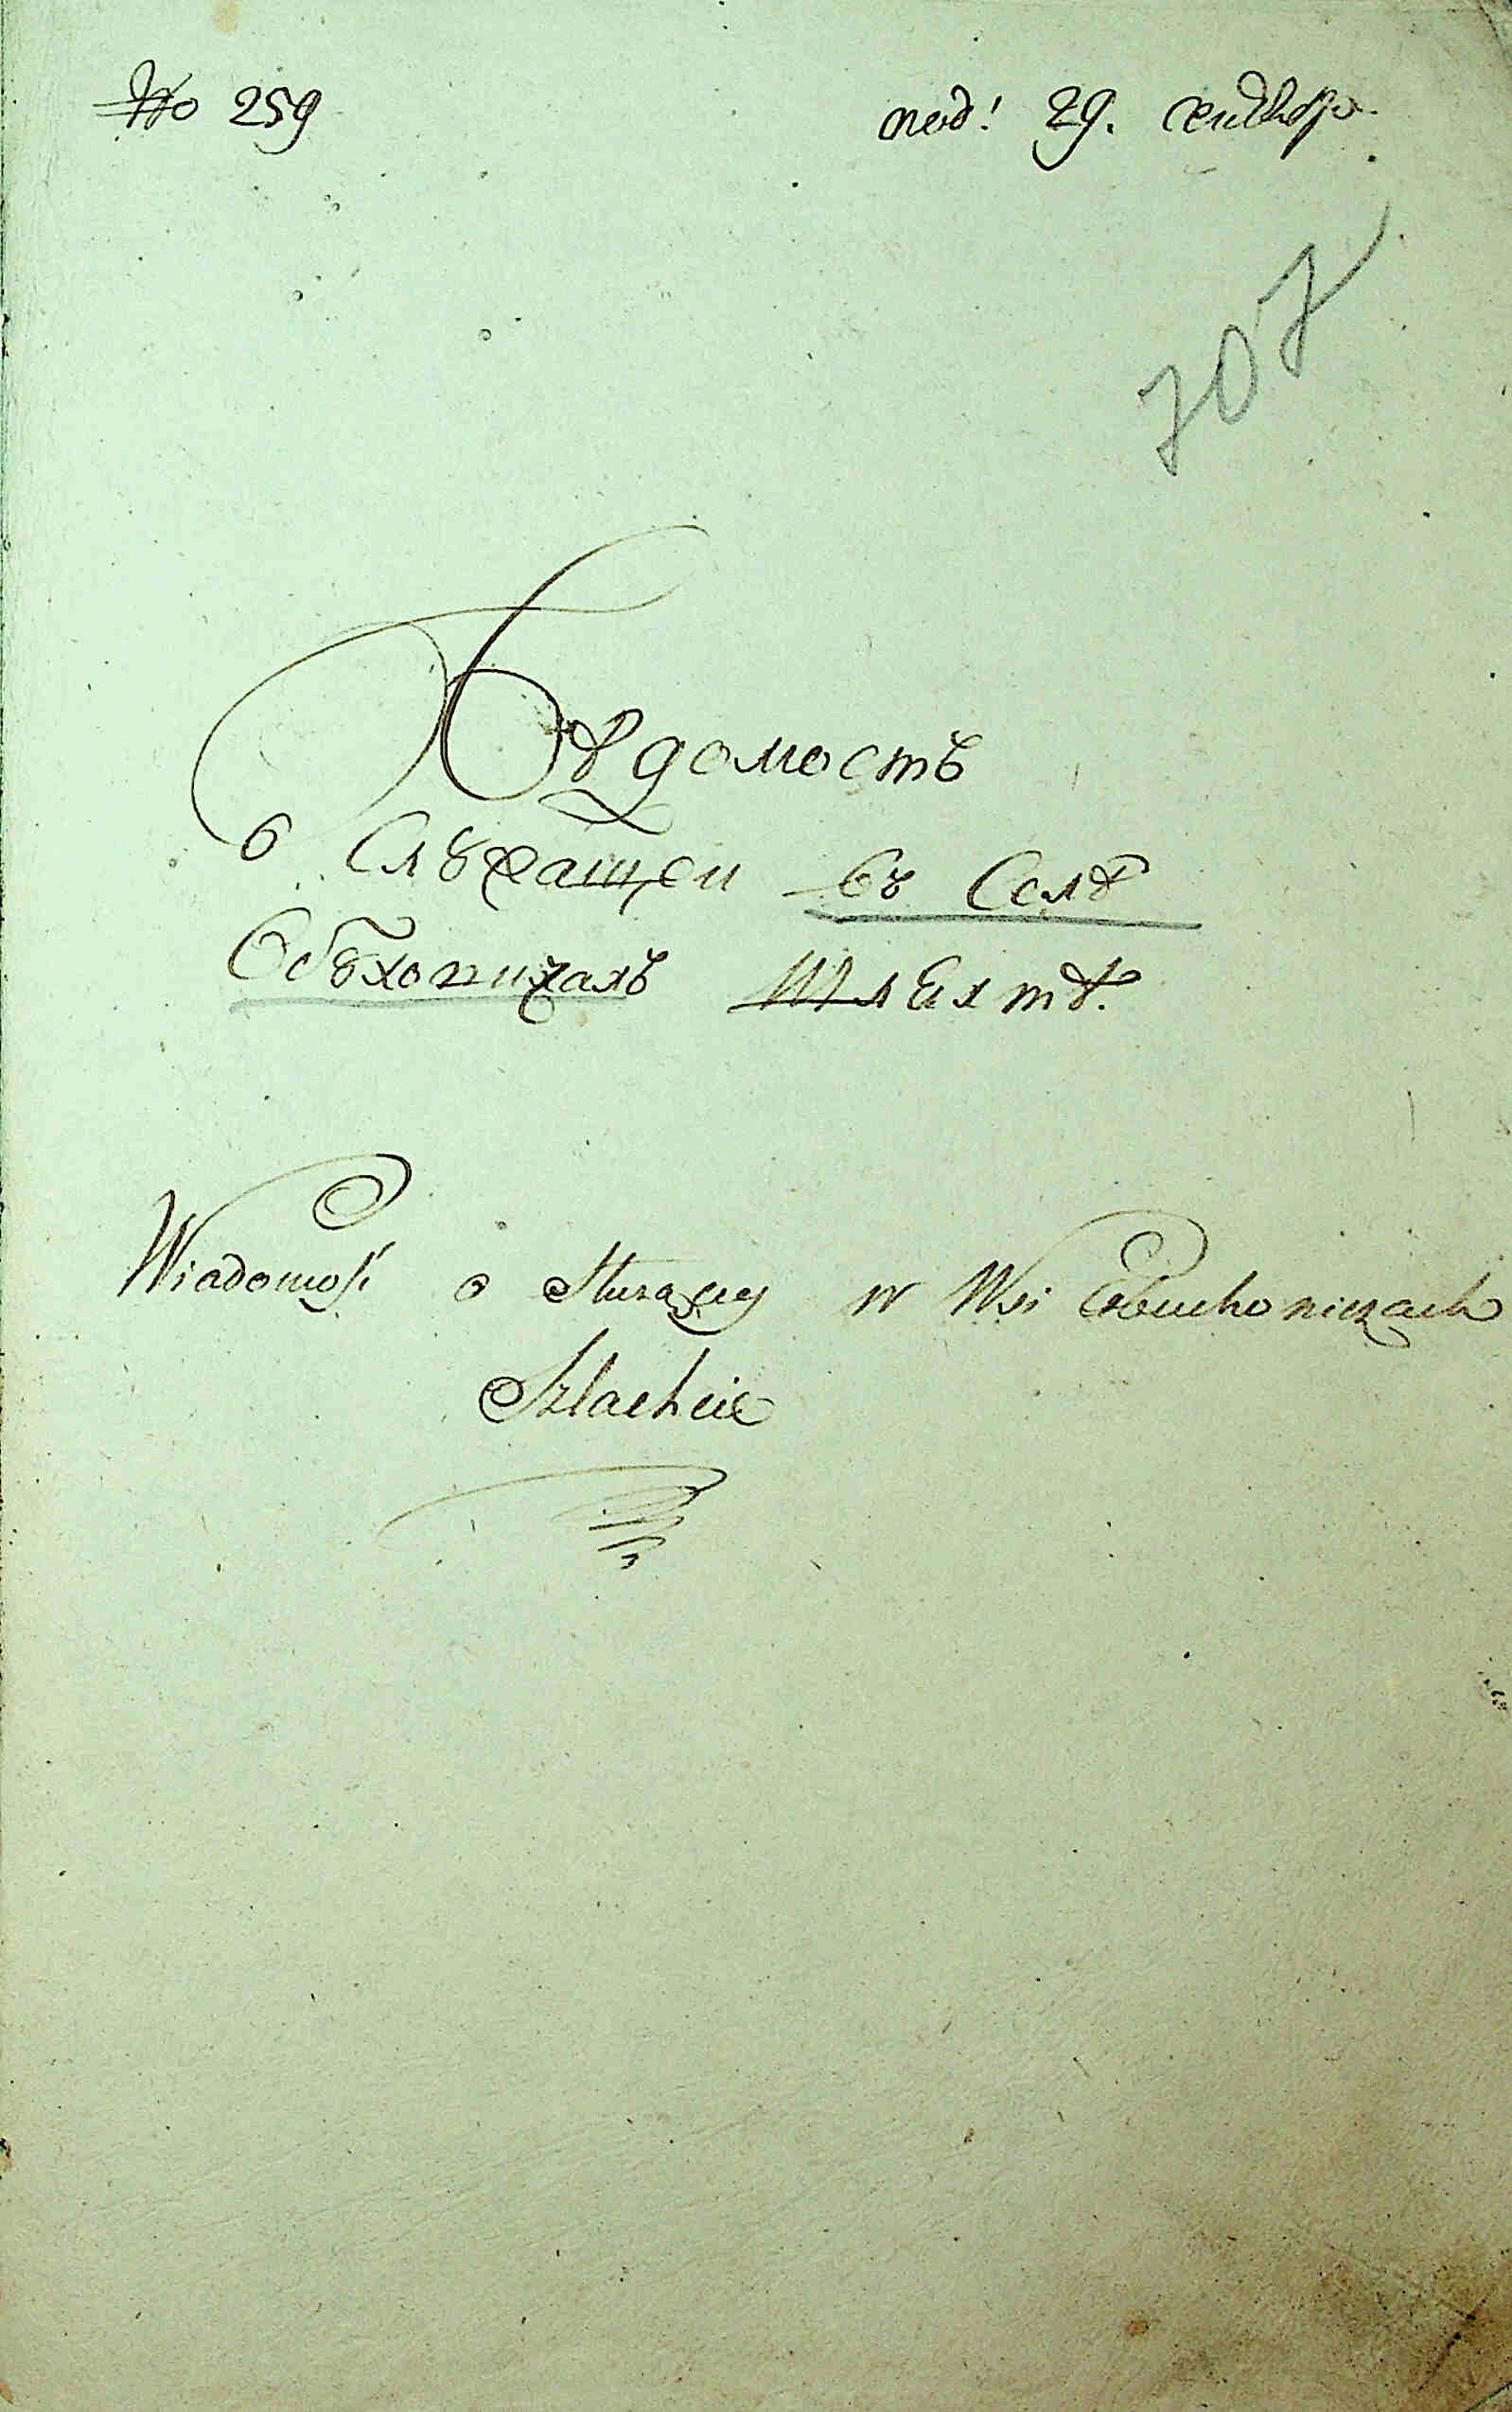 No 259
под: 29. сентября
707
Вѣдомость
о Служащеи въ Селѣ
Обухоничахъ Шляхтѣ.
Wiadomość o Służącey w Wsi Obuchoniczach
Szlachcie